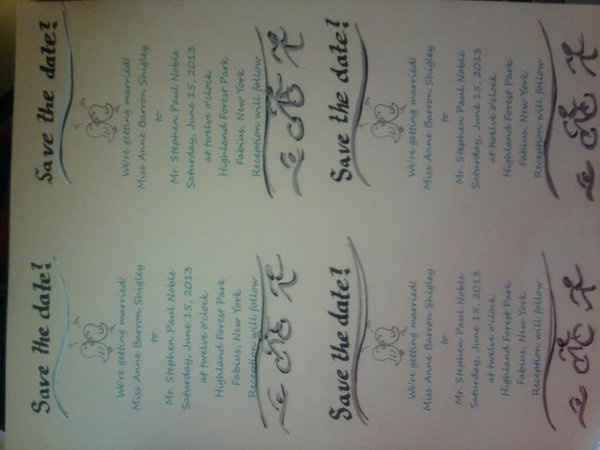 Save the date!
We're getting married!
Miss Anne Barron Shigley
to
Mr. Stephen Paul Noble
Saturday, June 15, 2013
at twelve o'clock
Highland Forest Park
Fabius, New York
Reception will follow
Save the date!
We're getting married!
Miss Anne Barron Shigley
to
Mr. Stephen Paul Noble
Saturday, June 15, 2013
at twelve o'clock
Highland Forest Park
Fabius, New York
Reception will follow
Save the date!
We're getting married!
Miss Anne Barron Shigley
to
Mr. Stephen Paul Noble
Saturday, June 15, 2013
at twelve o'clock
Highland Forest Park
Fabius, New York
Reception will follow
Save the date!
We're getting married!
Miss Anne Barron Shigley
to
Mr. Stephen Paul Noble
Saturday, June 15, 2013
at twelve o'clock
Highland Forest Park
Fabius, New York
Reception will follow